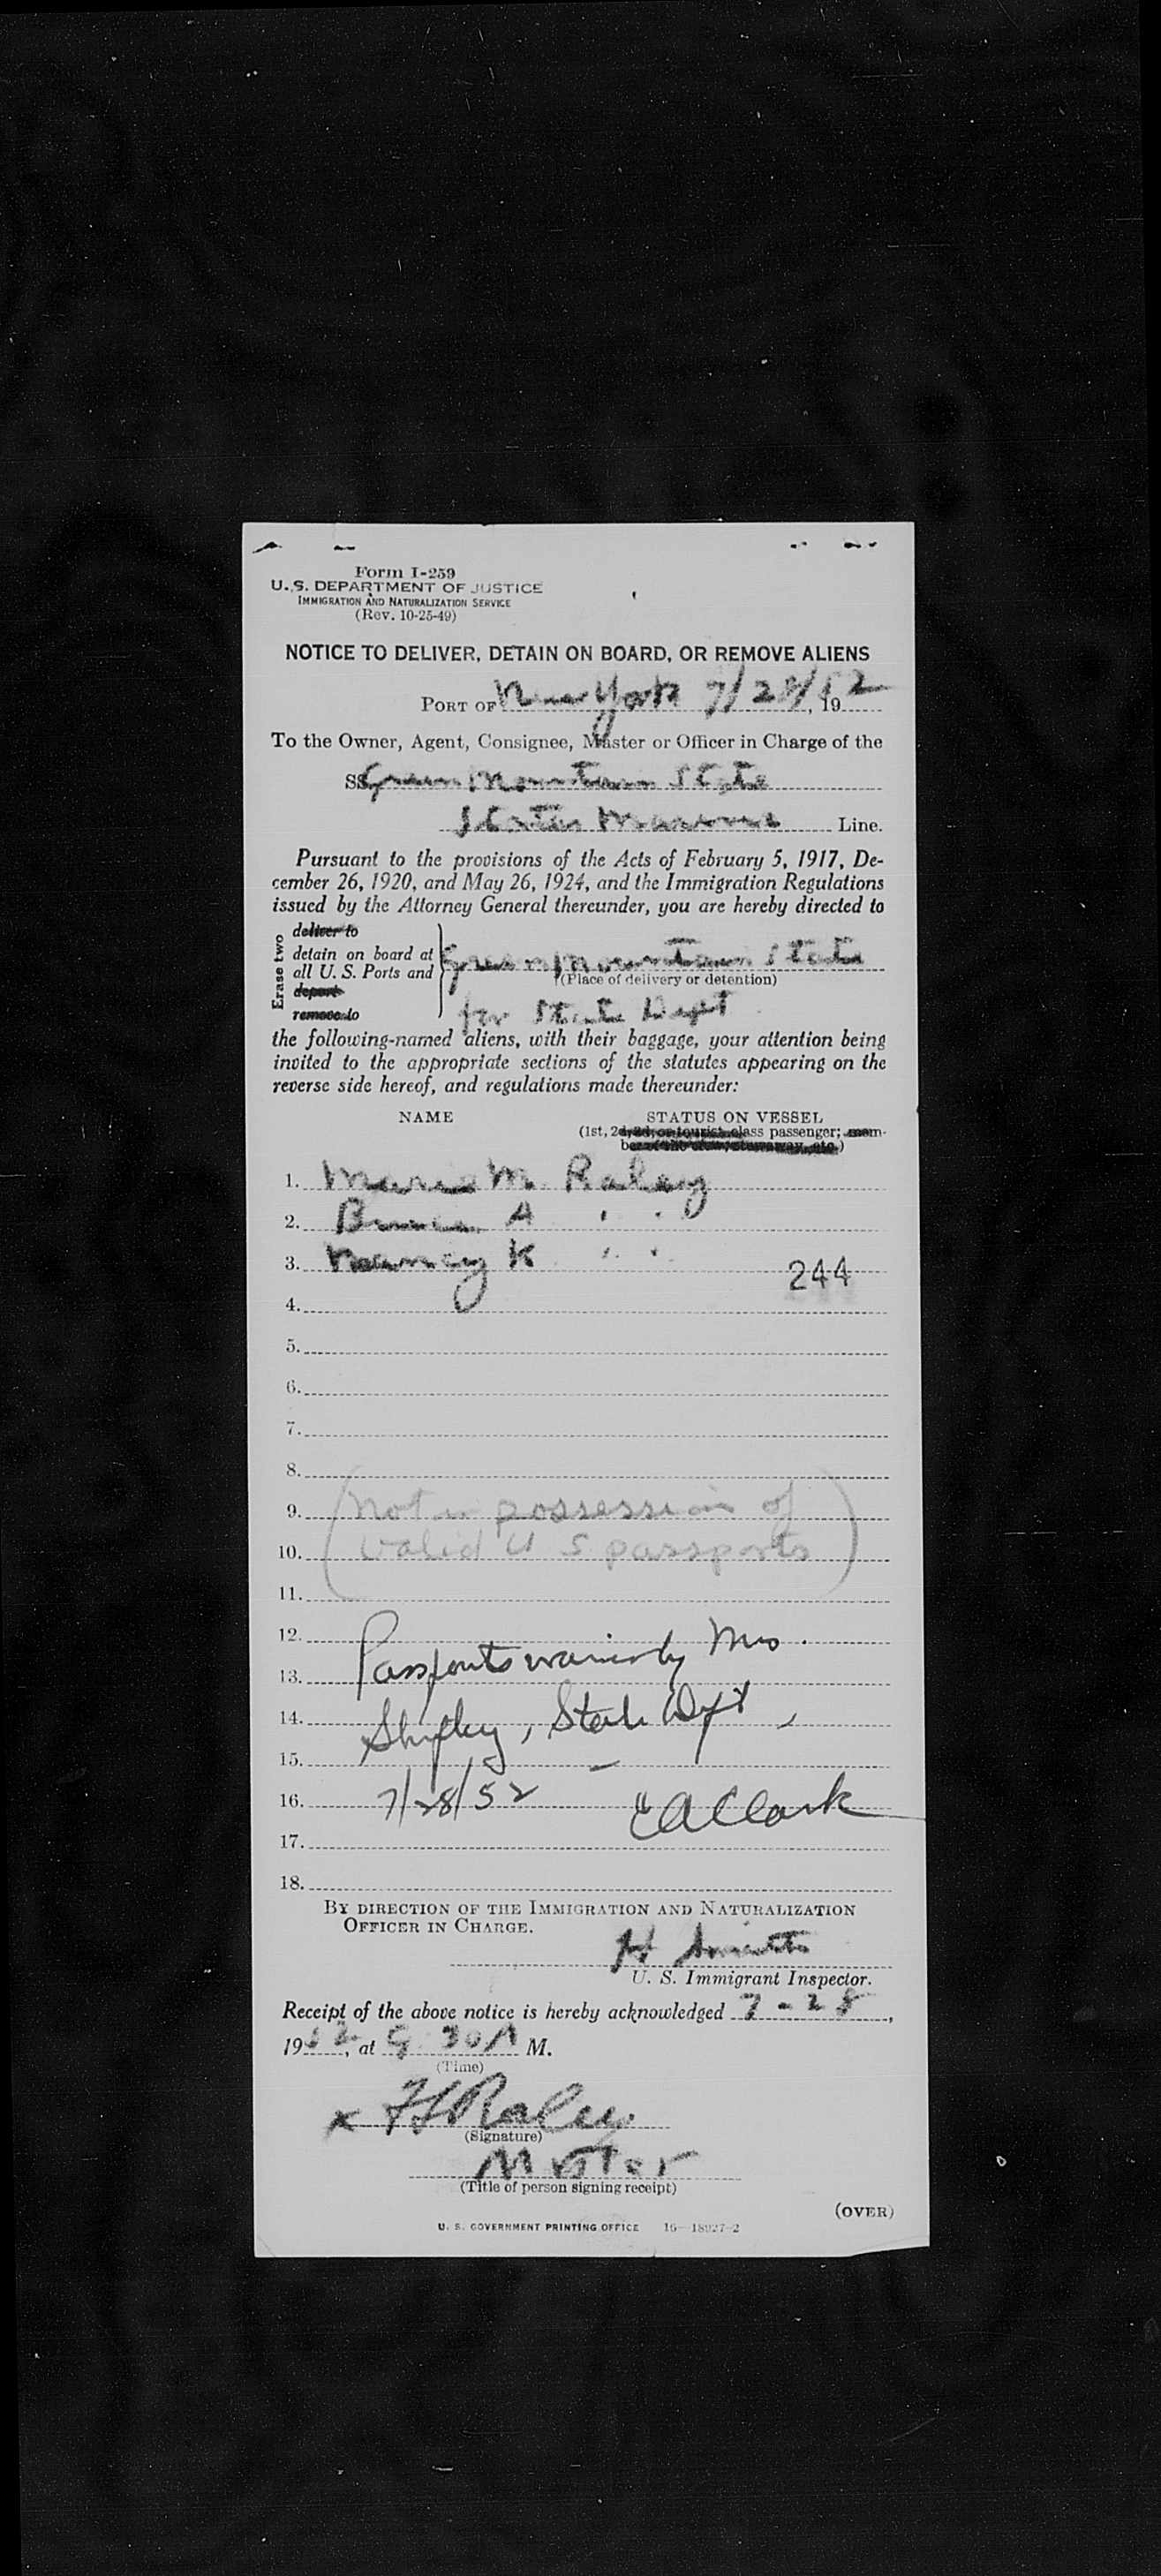 Form I-259
U. S. DEPARTMENT OF JUSTICE
IMMIGRATION AND NATURALIZATION SERVICE
(Rev. 10-25-49)
NOTICE TO DELIVER, DETAIN ON BOARD, OR REMOVE ALIENS
PORT OF New York 7/28/52, 19
To the Owner, Agent, Consignee, Master or Officer in Charge of the
SS Green Mountain State
States Marine Line.
Pursuant to the provisions of the Acts of February 5, 1917, De-
cember 26, 1920, and May 26, 1924, and the Immigration Regulations
issued by the Attorney General thereunder, you are hereby directed to
Erase two
deliver to
detain on board at
all U. S. Ports and
deport
remove to
Green Mountain State
(Place of delivery or detention)
for State Dept
the following-named aliens, with their baggage, your attention being
invited to the appropriate sections of the statutes appearing on the
reverse side hereof, and regulations made thereunder:
NAME STATUS ON VESSEL
(1st, 2d, 3d, or tourist class passenger; mem-
ber of the crew, stowaway, etc.)
1. Marie M. Raley
2. Bruce A " "
3. Nancy K " " 244
4.
5.
6.
7.
8.
9. (Not in possession of
10. valid U S passports)
11.
12.
13. Passports waived by Mrs.
14. Shipley, State Dept,
15.
16. 7/28/52 E A Clark
17.
18.
BY DIRECTION OF THE IMMIGRATION AND NATURALIZATION
OFFICER IN CHARGE.
H
U. S. Immigrant Inspector.
Receipt of the above notice is hereby acknowledged 7-28,
1952, at 9 30 A M.
(Time)
x F Raley
(Signature)
Master
(Title of person signing receipt)
(OVER)
U. S. GOVERNMENT PRINTING OFFICE 16-18927-2